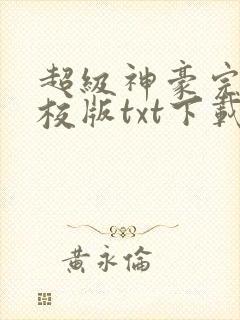 超級神豪完
校版txt下載
黃永倫